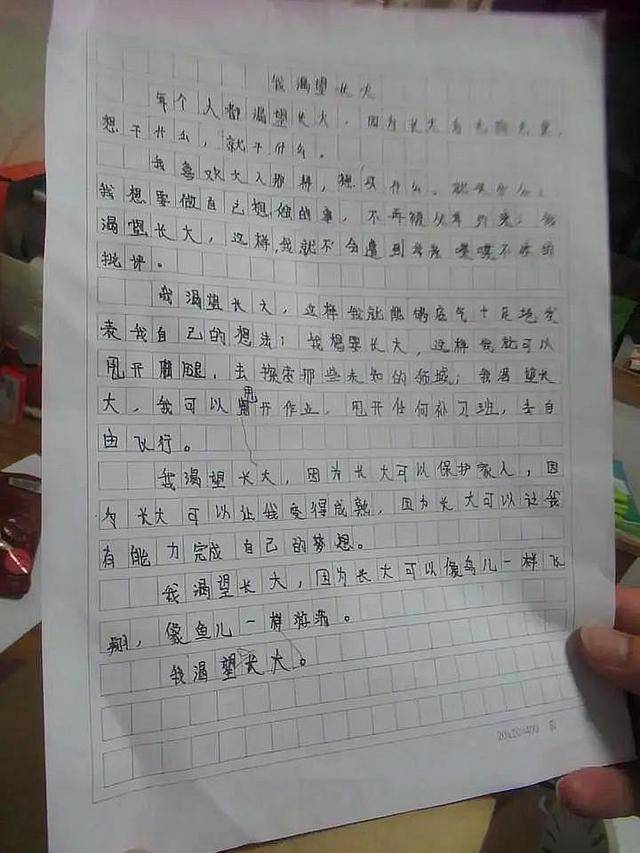 我渴望长大
每个人都渴望长大,因为长大后无拘无束,
想干什么,就干什么。
我喜欢大人那样,想买什么,就买什么;
我想要做自己想做的事,不再被父母列表;我
渴望长大,这样,我就不会遭到爸爸喋喋不休的
批评。
我渴望长大,这样我就能够底气十足地发
表我自己的想法;我想要长大,这样我就可以
甩开腿,去探索那些未知的领域;我渴望长
大,我可以甩开作业,甩开任何补习班,去自
由飞行。
我渴望长大,因为长大可以保护家人,因
为长大可以让我变得成熟,因为长大可以让我
有能力完成自己的梦想。
我渴望长大,因为长大可以像鸟儿一样飞
翔,像鱼儿一样游荡。
我渴望长大。